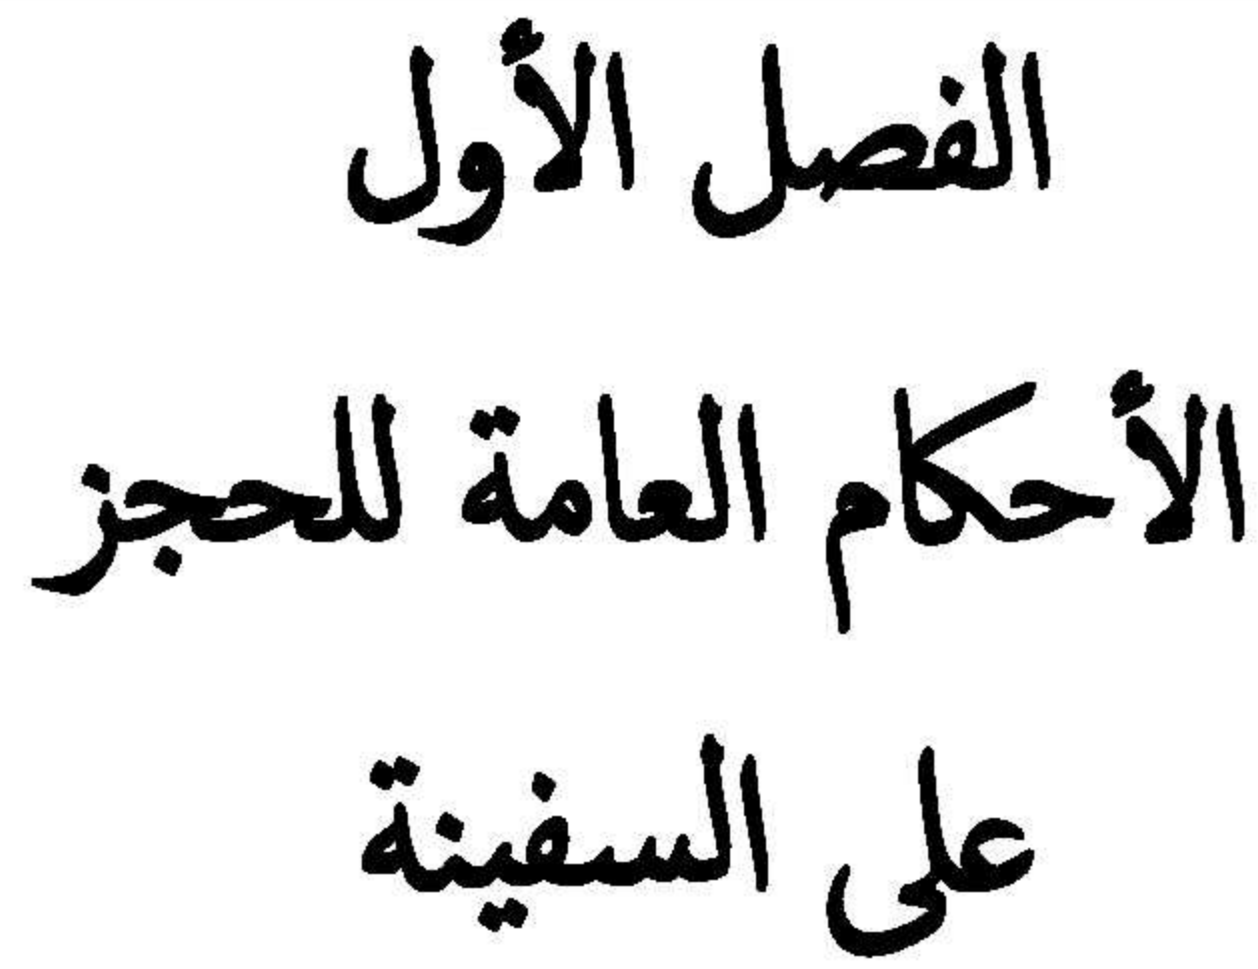 الفصل الأول
الأحكام العامة للحجز
على السفينة